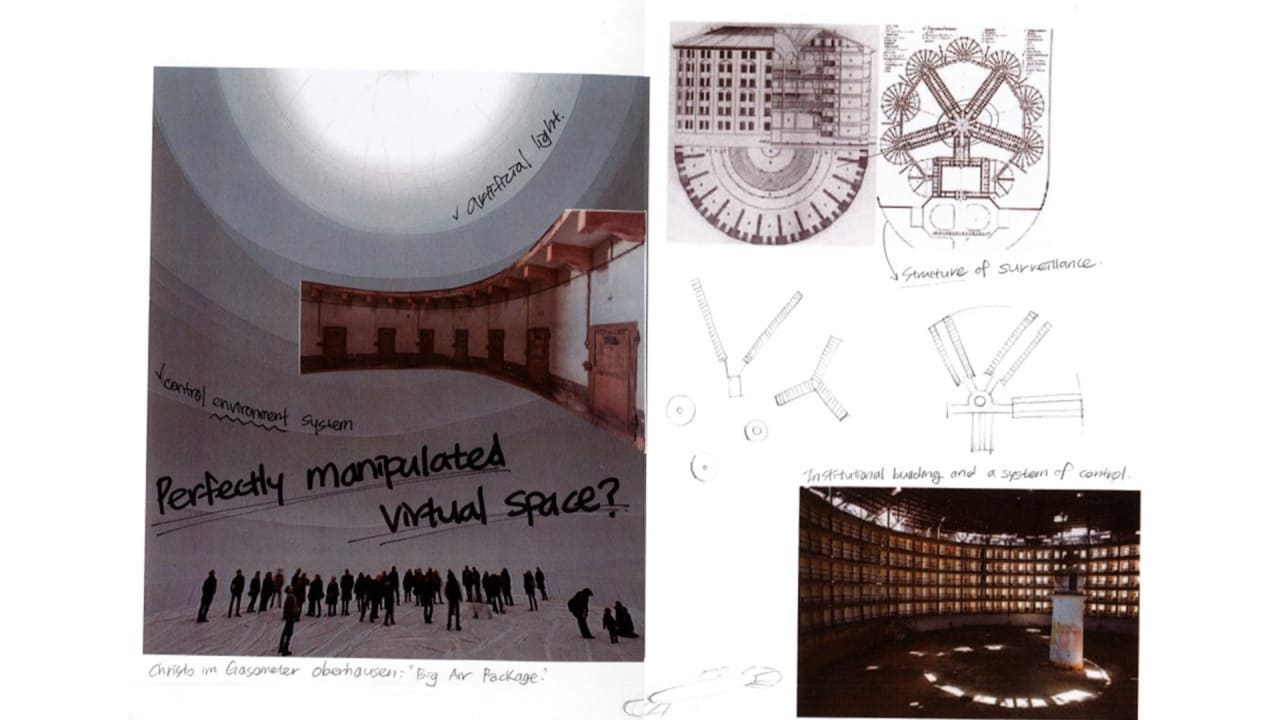 ✓ artificial light.
✓ control environment system
Perfectly manipulated
virtual space?
Christo im Gasometer oberhausen: "Big Air Package."
Structure of surveillance.
Institutional building and a system of control.